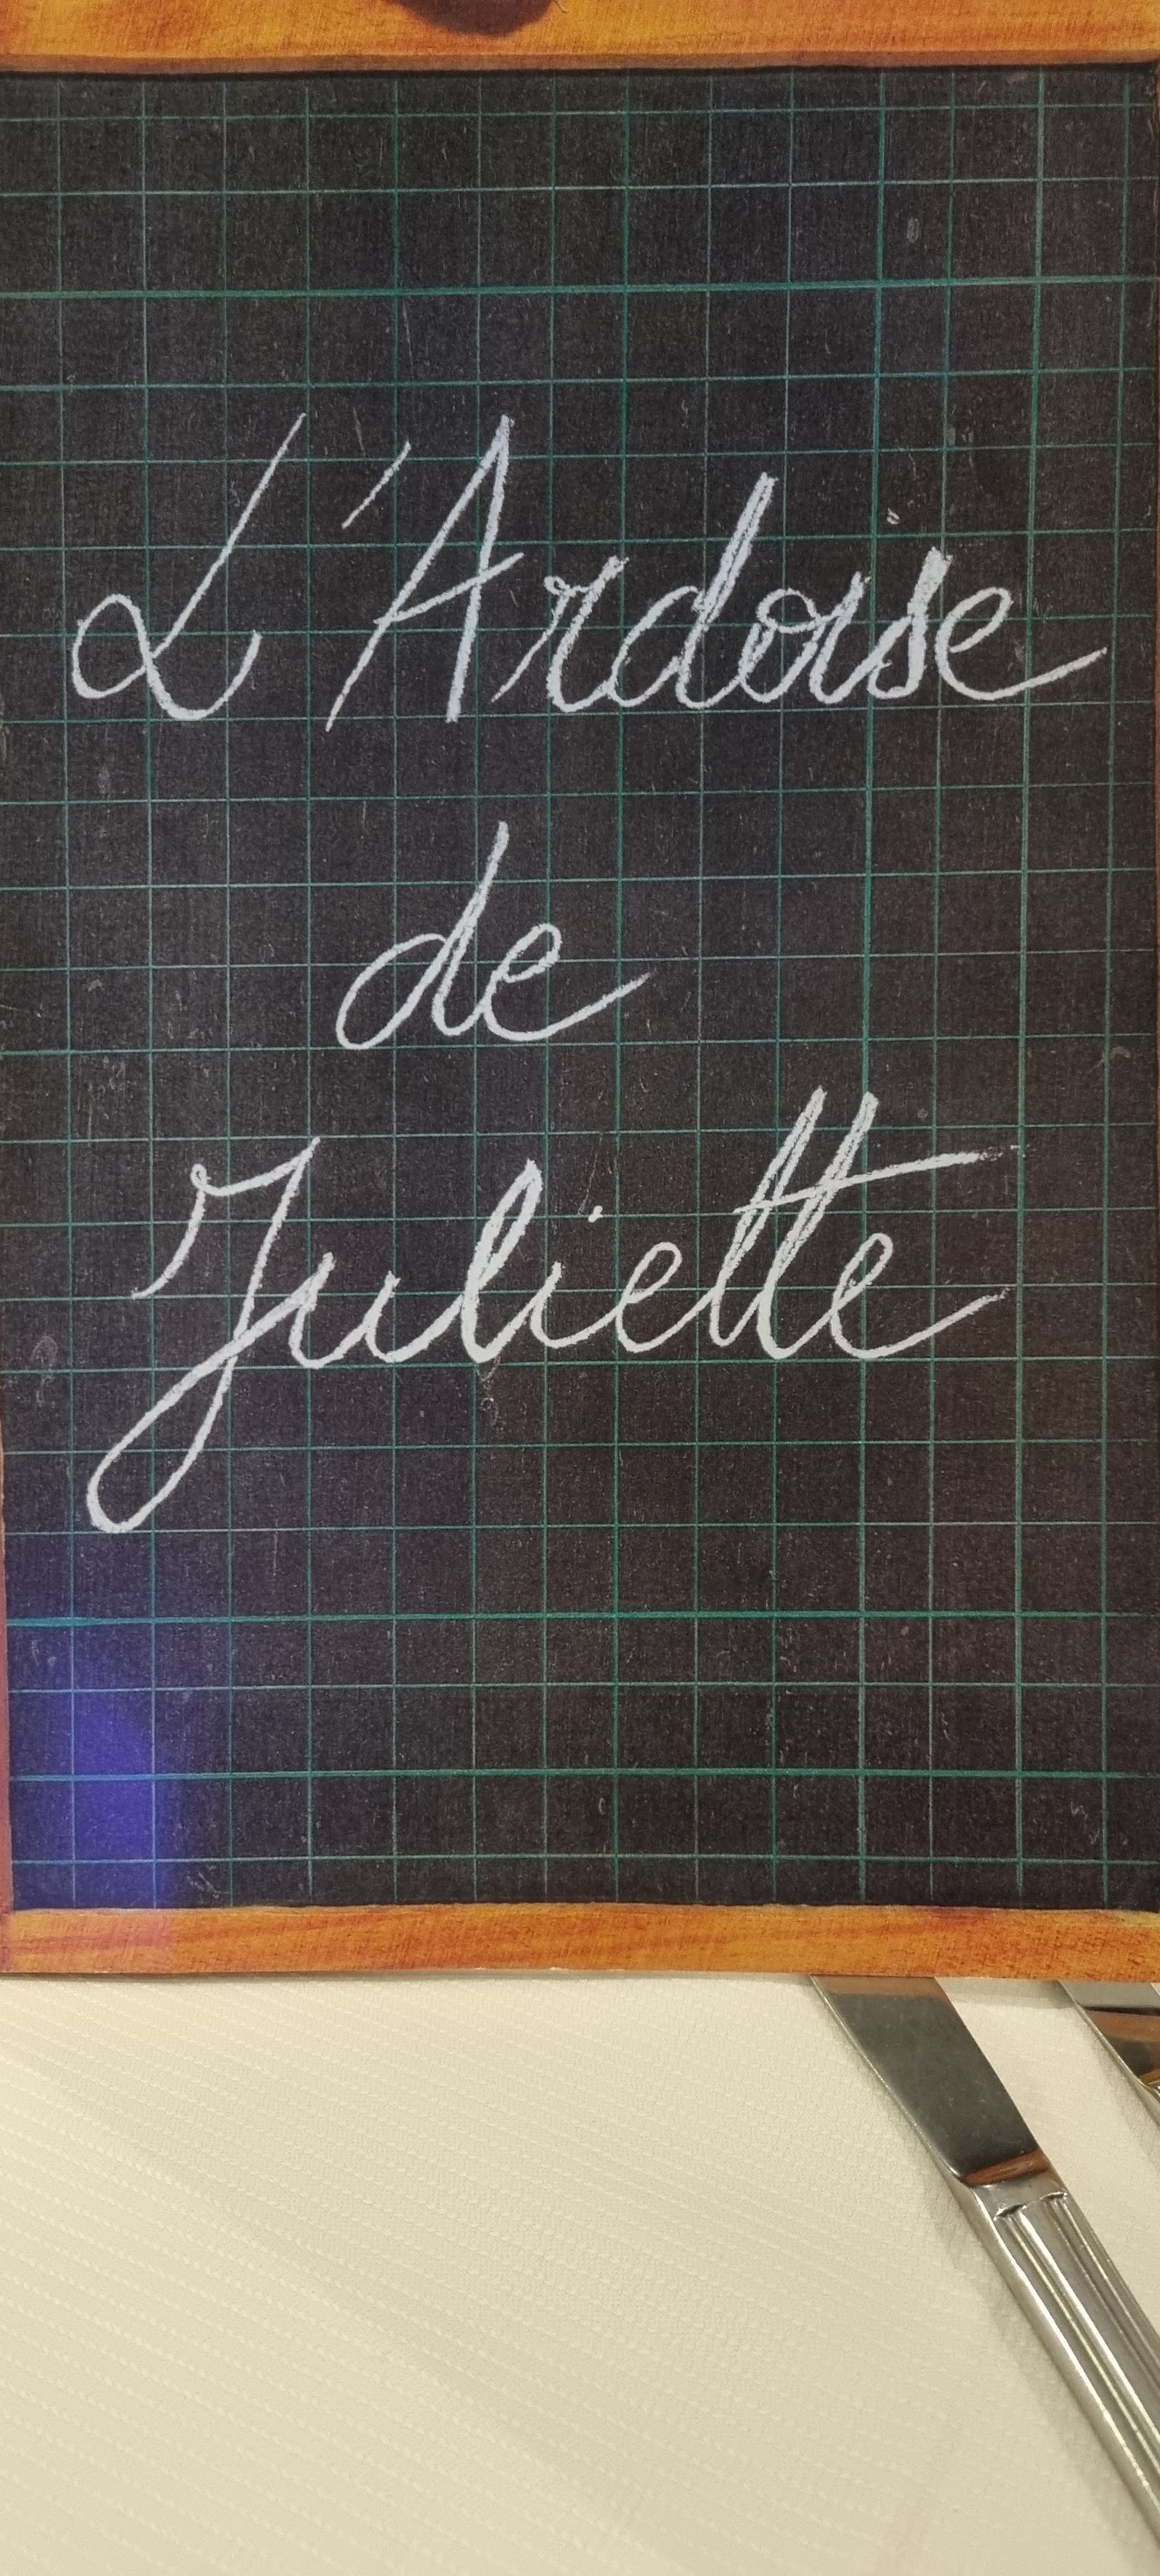 L'Ardoise
de
Juliette